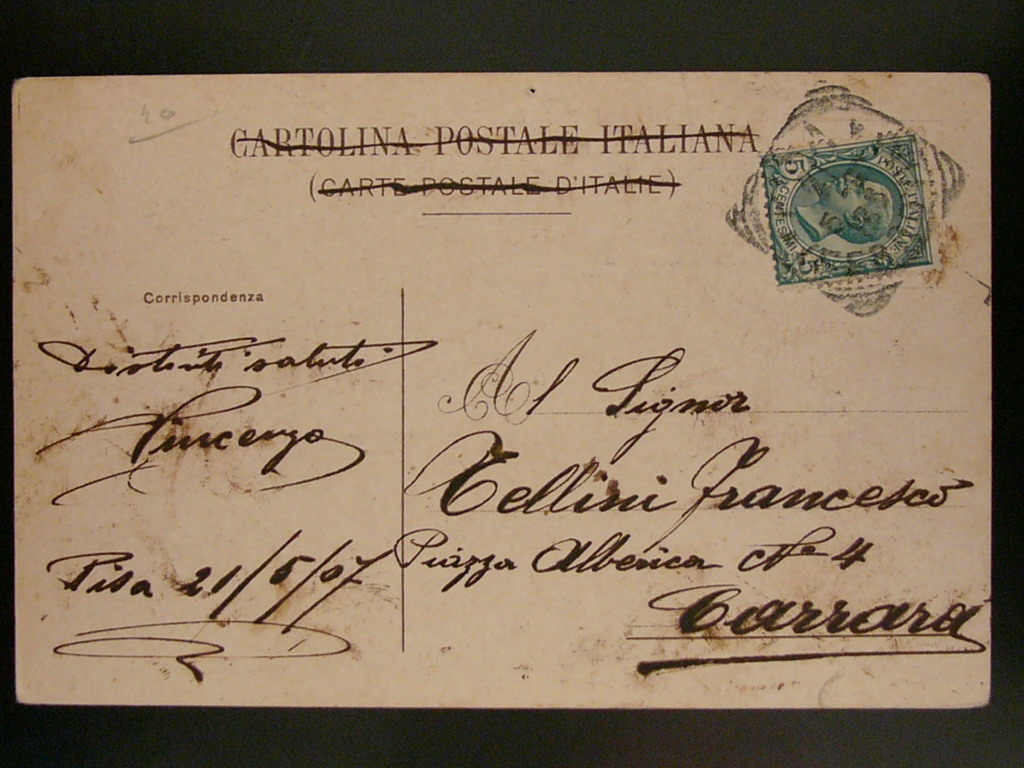 40
CARTOLINA POSTALE ITALIANA
(CARTE POSTALE D'ITALIE)
POSTE ITALIANE
5 CENTESIMI 5
Corrispondenza
Distinti saluti
Vincenzo
Pisa 21/5/07
Al Signor
Tellini Francesco
Piazza Alberica N° 4
Carrara